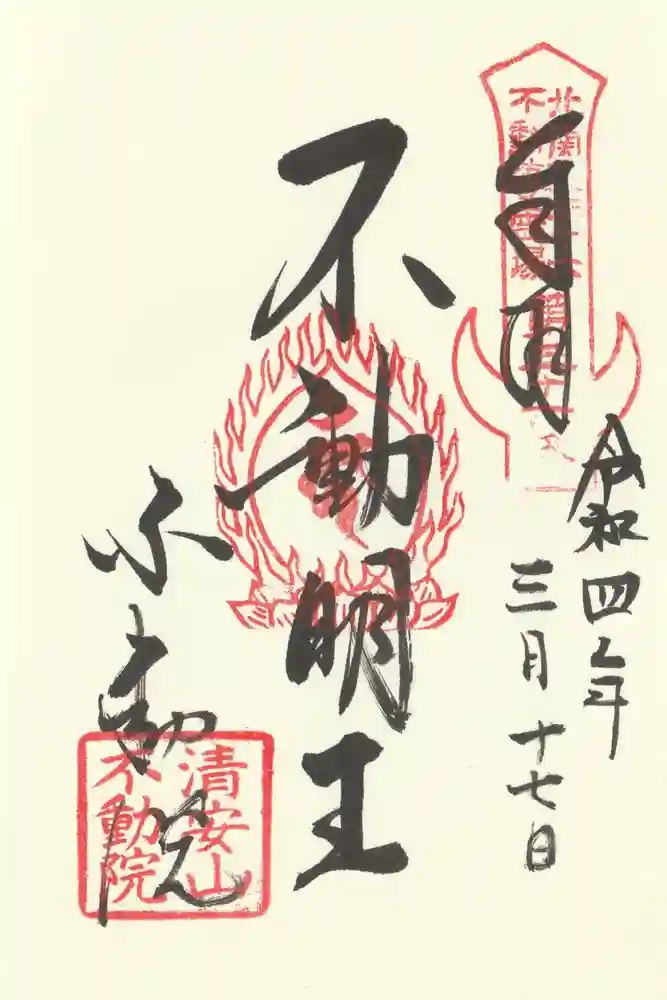 北関東三十六
不動尊霊場
令和四年
三月十七日
不動明王
不動院
清安山
不動院